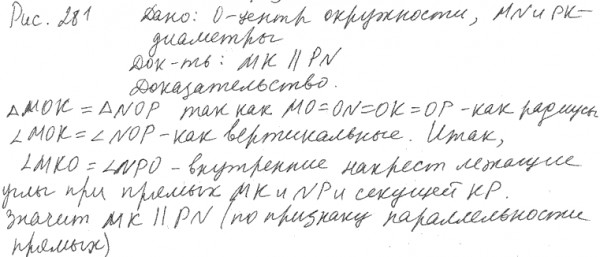 Рис. 281 Дано: О-центр окружности, MN и PK-
диаметры
Док-ть: MK || PN
Доказательство.
△MOK = △NOP так как MO=ON=OK=OP-как радиусы
∠MOK=∠NOP-как вертикальные. Итак,
∠MKO = ∠NPO - внутренние накрест лежащие
углы при прямых MK и NP и секущей KP.
Значит MK || PN (по признаку параллельности
прямых)